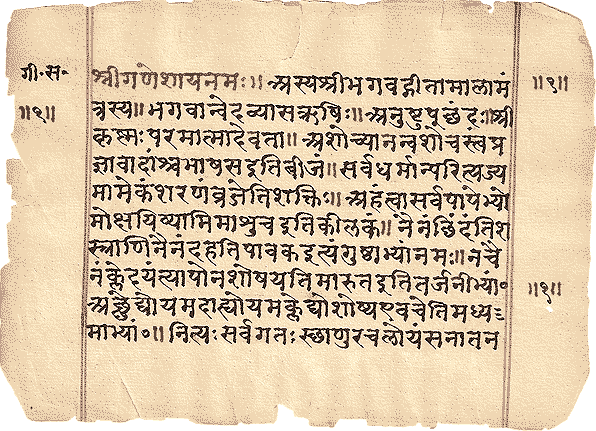 गी॰स॰ श्रीगणेशायनमः॥ अस्यश्रीभगवद्गीतामालामं ॥१॥
॥१॥ त्रस्य॥ भगवान्वेदव्यासऋषिः॥ अनुष्टुप्छंदः॥ श्री
कृष्मः परमात्मादेवता॥ अशोच्यानन्वशोचस्त्वंप्र
ज्ञावादांश्चभाषसइतिबीजं॥ सर्वधर्मान्परित्यज्य
मामेकंशरणंव्रजेतिशक्तिः॥ अहंत्वासर्वपापेभ्यो
मोक्षयिष्यामिमाशुचइतिकीलकं॥ नैनंछिंदंतिश
स्त्राणिनैनंदहतिपावकइत्यंगुष्ठाभ्यांनमः॥ नचै
नंक्लेदयंत्यापोनशोषयतिमारुतइतितर्जनीभ्यां॰ ॥१॥
अछेद्योयमदाह्योयमक्लेद्योशोष्यएवचेतिमध्य
माभ्यां॰॥ नित्यः सर्वगतः स्छाणुरचलोयंसनातन